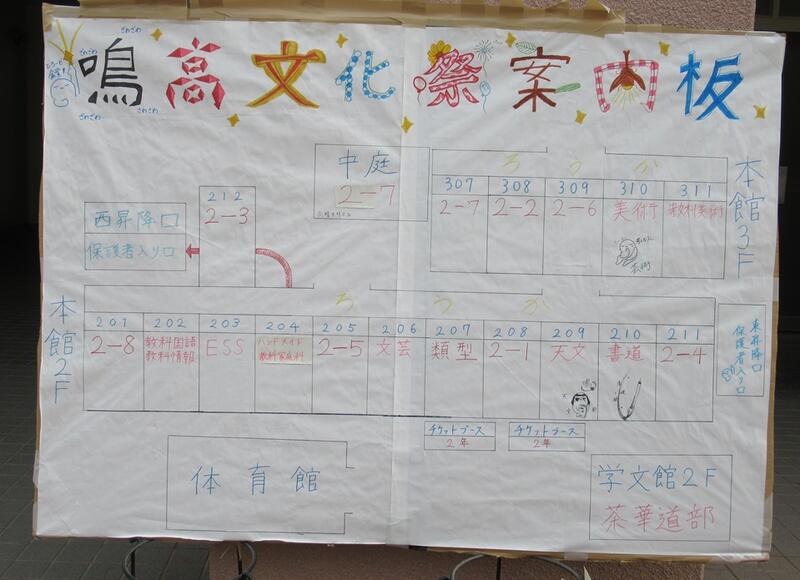 ざわざわ
ざわざわ
ざわざわ
ざわざわ
鳴高文化祭案内板
中庭
2-7
ろうか
307 308 309 310 311
2-7 2-2 2-6 美術 教科美術
本館3F
212
2-3
西昇降口
保護者入り口
本館2F
ろうか
201 202 203 204 205 206 207 208 209 210 211
2-8 教科国語 ESS ハンドメイド 2-5 文芸 類型 2-1 天文 書道 2-4
教科情報 教科家庭科
東昇降口
保護者入り口
チケットブース
2年
チケットブース
2年
体育館
学文館2F
茶華道部